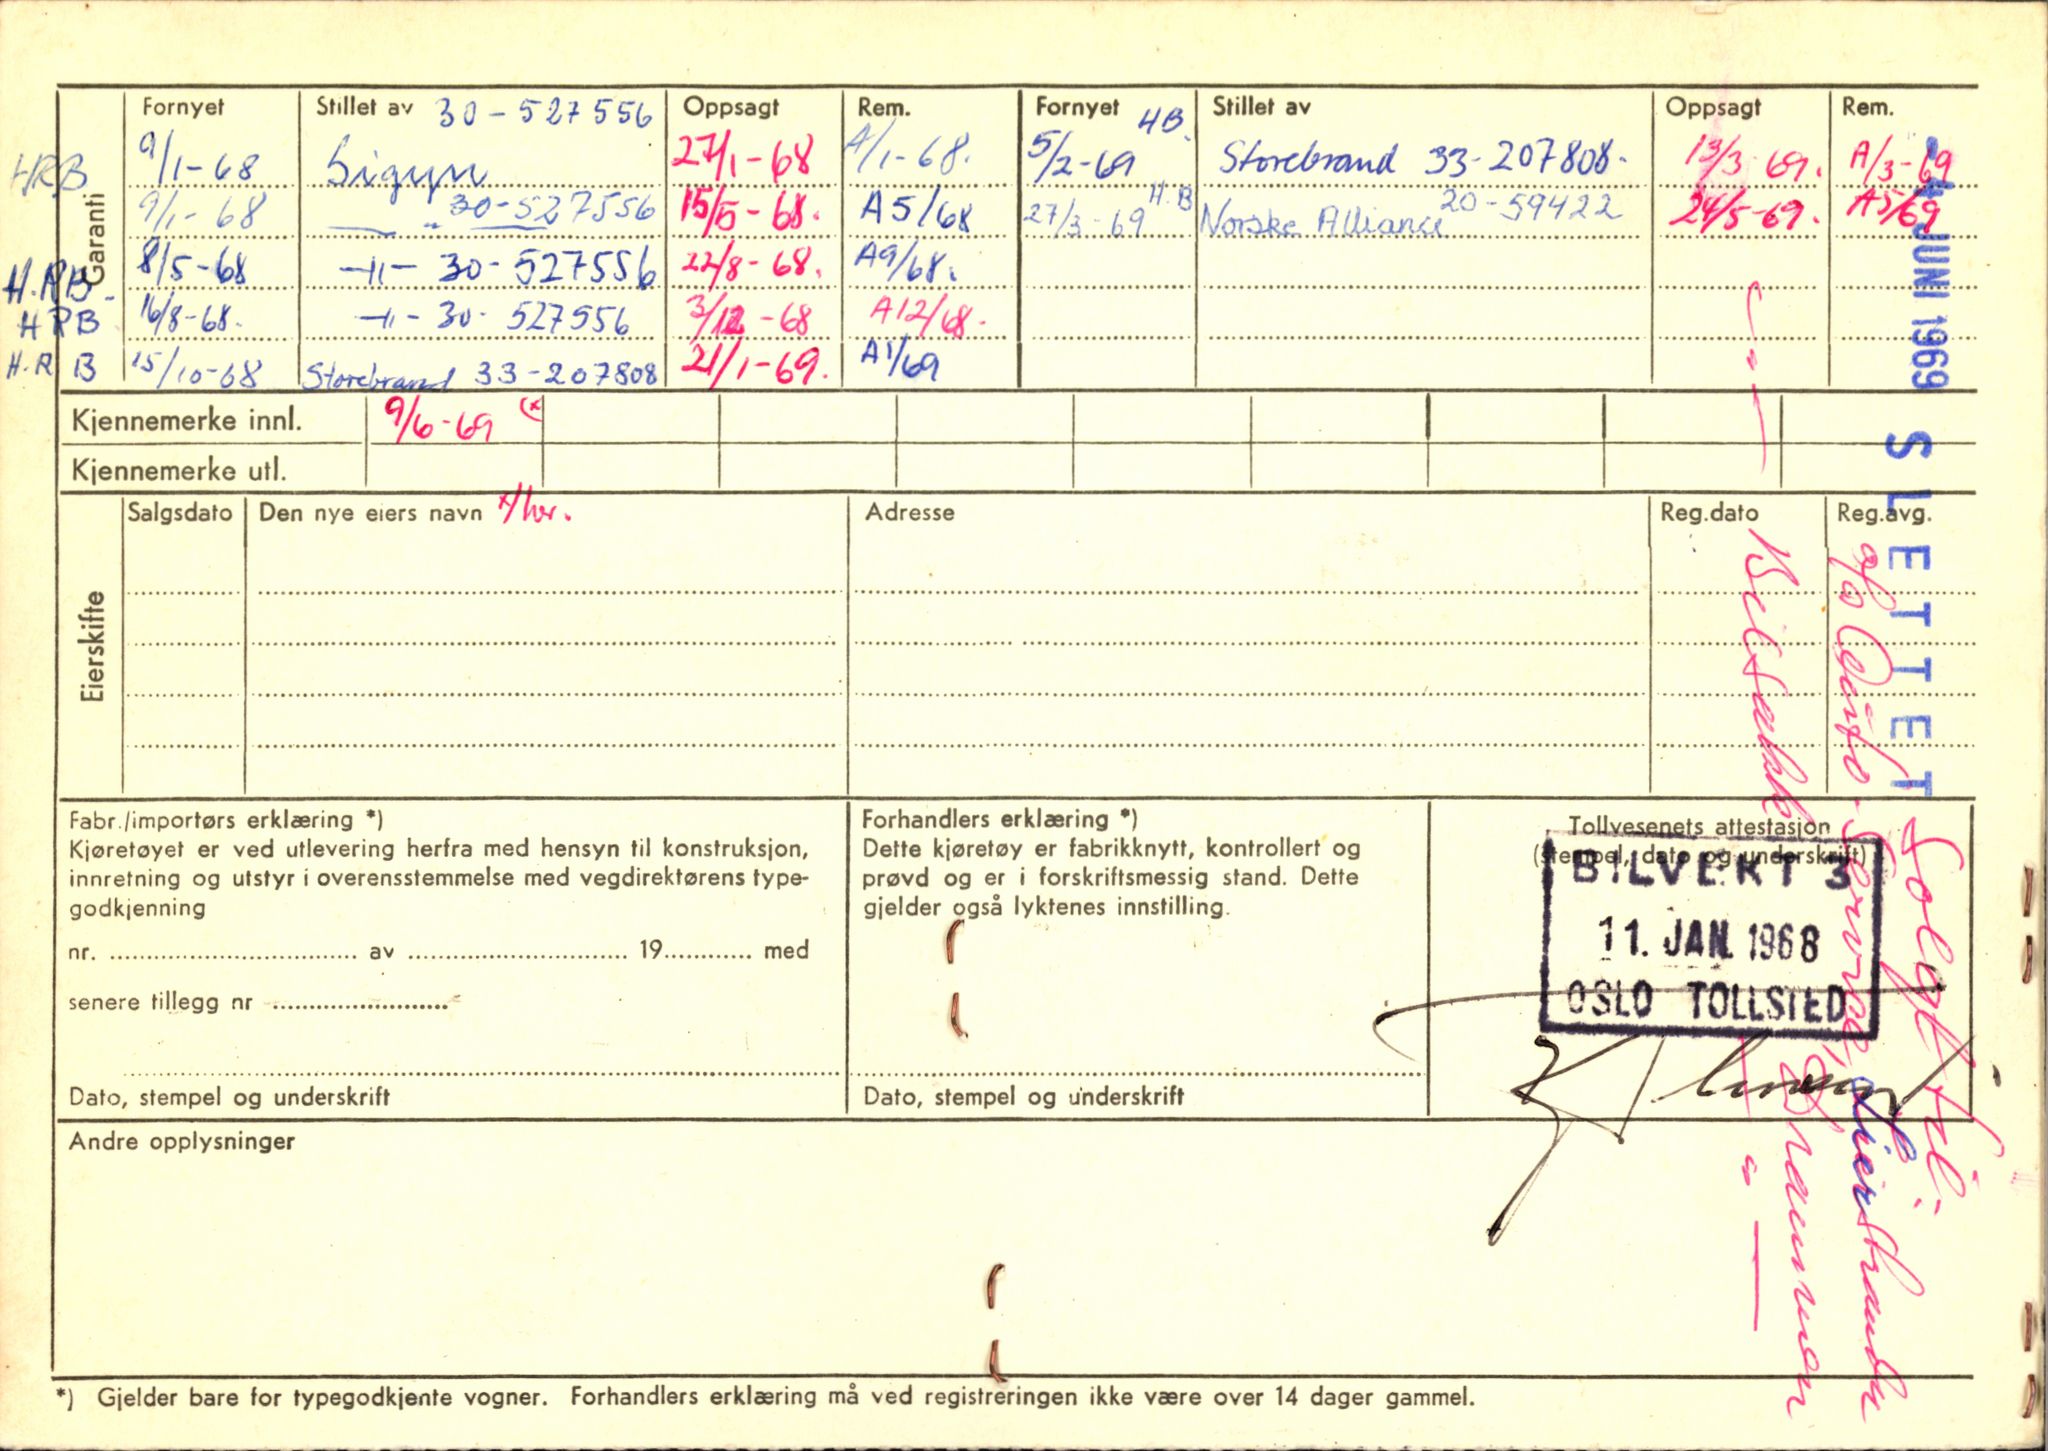 Fornyet Stillet av 30-527556 Oppsagt Rem. Fornyet HB. Stillet av Oppsagt Rem.
Garanti
HRB 9/1-68 Sigyn 27/1-68 A/1-68. 5/2-69 Storebrand 33-207808. 13/3-69. A/3-69
9/1-68 —"— 30-527556 15/5-68. A5/68 27/3-69 H.B Norske Alliance 20-59422 24/5-69. A5/69
H.RB. 8/5-68 -"- 30-527556 22/8-68. A9/68.
HRB 16/8-68. -"- 30-527556 3/12-68 A12/68.
H.R B 15/10-68 Storebrand 33-207808 21/1-69. A1/69
Kjennemerke innl. 9/6-69 (x
Kjennemerke utl.
Eierskifte
Salgsdato Den nye eiers navn Adresse Reg.dato Reg.avg.
-4 JUNI 1969
SLETTET
Solgt til
Lierstranda
Drammen
Beisakk
Fabr./importørs erklæring *)
Kjøretøyet er ved utlevering herfra med hensyn til konstruksjon,
innretning og utstyr i overensstemmelse med vegdirektørens type-
godkjenning
nr. av 19 med
senere tillegg nr
Dato, stempel og underskrift
Forhandlers erklæring *)
Dette kjøretøy er fabrikknytt, kontrollert og
prøvd og er i forskriftsmessig stand. Dette
gjelder også lyktenes innstilling.
Dato, stempel og underskrift
Tollvesenets attestasjon
(stempel, dato og underskrift)
BILVEKT 3
11. JAN. 1968
OSLO TOLLSTED
Andre opplysninger
*) Gjelder bare for typegodkjente vogner. Forhandlers erklæring må ved registreringen ikke være over 14 dager gammel.